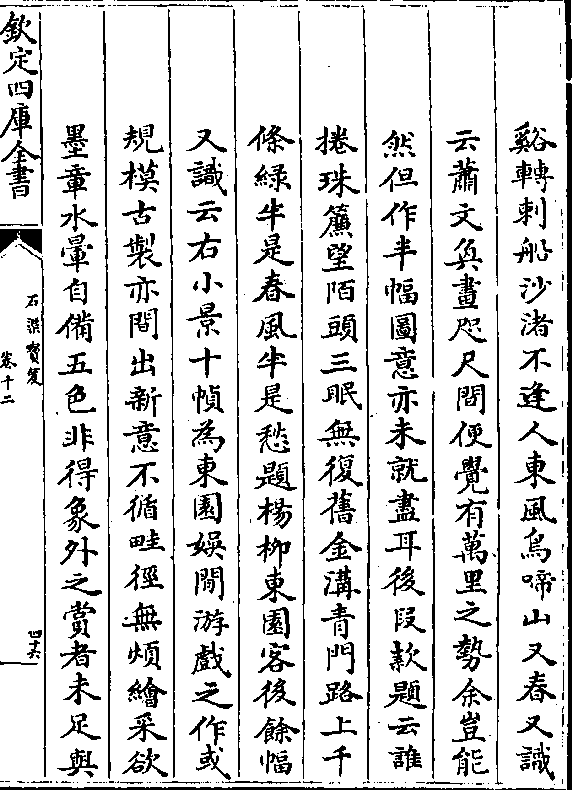 谿轉刺船沙渚不逢人東風烏啼山又春又識
云蕭文奐畫咫尺間便覺有萬里之勢余豈能
然但作半幅圖意亦未就盡耳後段款題云誰
捲珠簾望陌頭三眠無復舊金溝青門路上千
條綠半是春風半是愁題楊柳東園客後餘幅
又識云右小景十幀為東園娛閒游戲之作或
規模古製亦間出新意不循畦徑無煩繪采欲
墨章水暈自備五色非得象外之賞者未足與
欽定四庫全書
石渠寶笈
卷十二
四十六